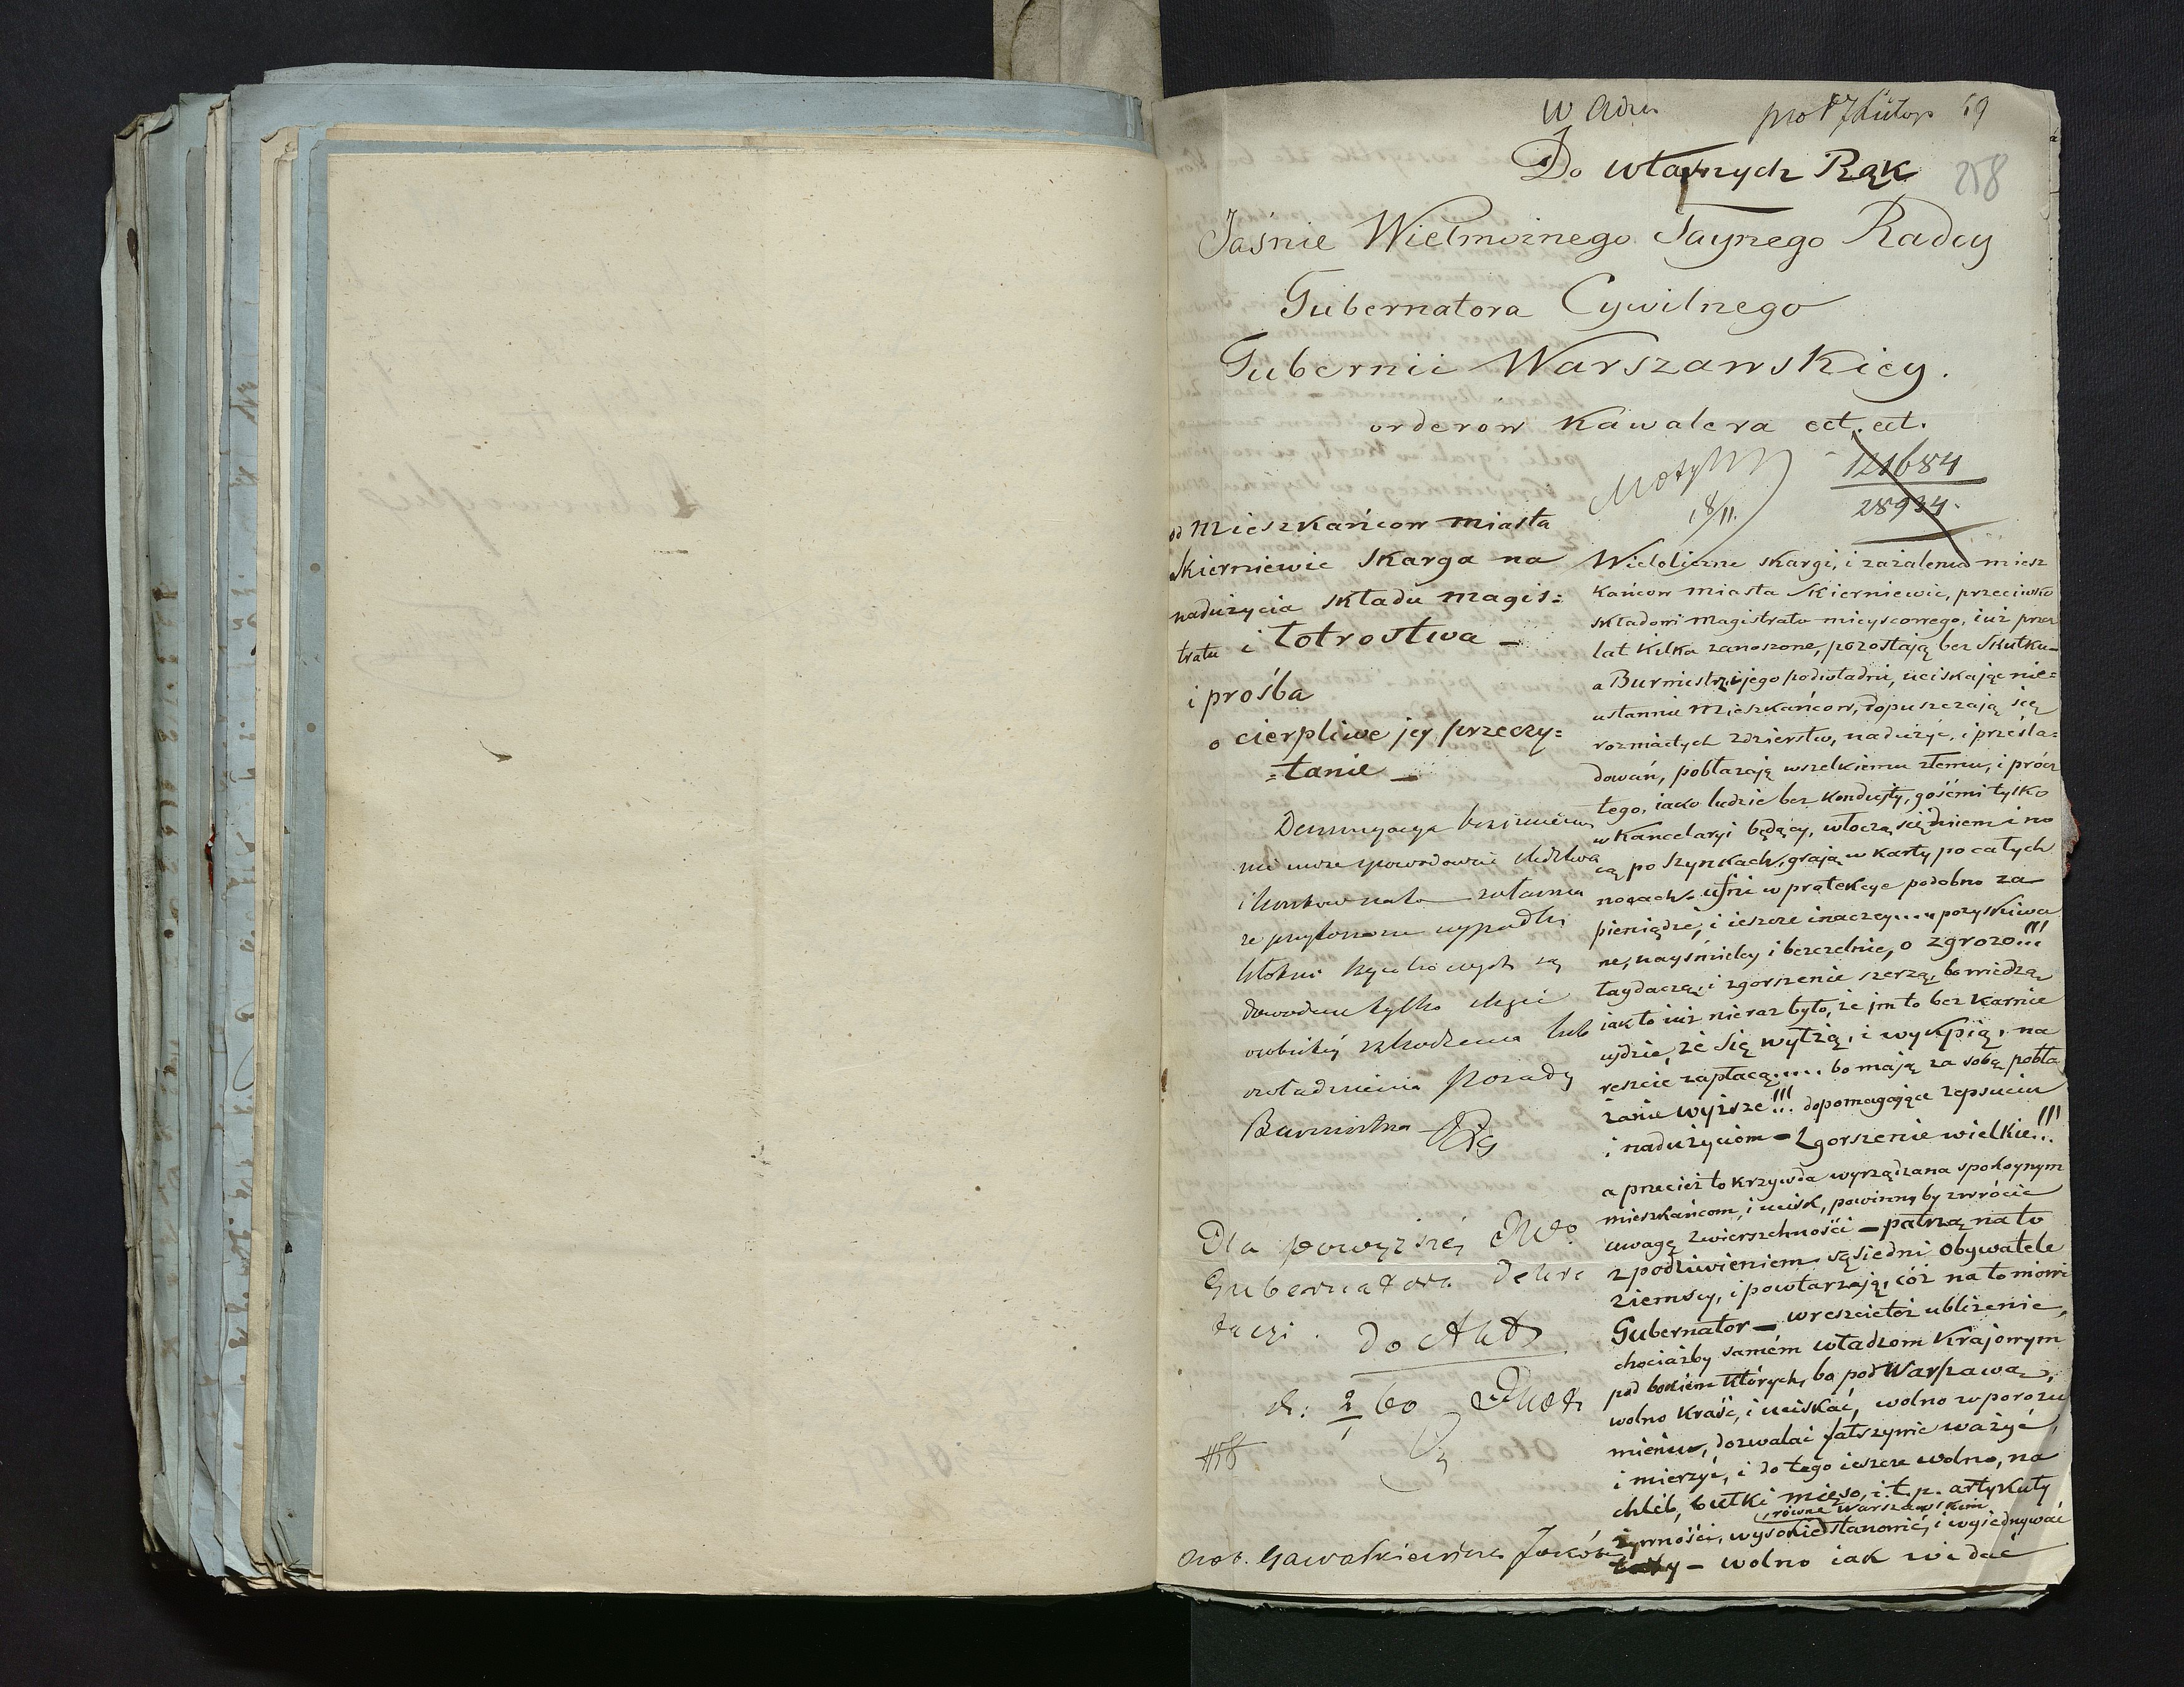 Do własnych Rąk
258
Jaśnie Wielmożnego Taynego Radcy
Gubernatora Cywilnego
Gubernii Warszawskiey.
orderow Kawalera ect. ect.
121684
28934.
18/11.
od Mieszkańcow miasta
Skierniewic Skarga na
nadużycia składu magis=
tratu i łotrostwa –
i prośba
o cierpliwe jey przeczy=
=tanie –
Wieloliczne skargi, i zażalenia miesz
kańcow miasta Skierniewic, przeciwko
składowi Magistratu mieyscowego, iuż przez
lat kilka zanoszone, pozostają bez skutku –
a Burmistrz i jego podwładni, uciskając nie=
ustannie Mieszkańcow, dopuszczają się
rozmaitych zdzierstw, nadużyć, i prześla=
dowań, pobłażają wszelkiemu złemu, i prócz
tego, iako ludzie bez konduity, gośćmi tylko
w Kancelaryi będący, włoczą się dniem i no
cą po szynkach, grają w karty po całych
nocach – ufni w protekcye podobno za
pieniądze, i ieszcze inaczey.... pozyskiwa
ne, nayśmieley i bezczelnie, o zgrozo!!!
łaydaczą, i zgorszenie szerzą, bo wiedzą
iak to iuż nieraz było, że jm to bezkarnie
ujdzie, że się wyłżą, i wykpią, na
reszcie zapłacą.... bo mają za sobą pobła
żanie wyższe!!! dopomagające zepsuciu
i nadużyciom – Zgorszenie wielkie!!!
a przecież to krzywda wyrządzana spokoynym
mieszkańcom, i ucisk, powinny by zwrócić
uwagę zwierzchności – patrzą na to
z podziwieniem sąsiedni Obywatele
ziemscy, i powtarzają, cóż na to mowi
Gubernator – wreszcie toż ubliżenie,
chociażby samém władzom Krajowym
pod bokiem których, bo pod Warszawą,
wolno kraść, i uciskać, wolno w porozu
mieniu, dozwalać fałszywie ważyć,
i mierzyć, i do tego ieszcze wolno, na
chléb, bułki mięso, i.t.p. artykuły
równe Warszawskim
żywności, wysokie stanowić, i wyiednywać
taxy – wolno iak widać
dowodem tylko chęci
osobistéj szkodzenia lub
Burmistrza
Dla powyższej JWo
Gubernatora dekre
tacyi. do Akt
d: 2/1 60